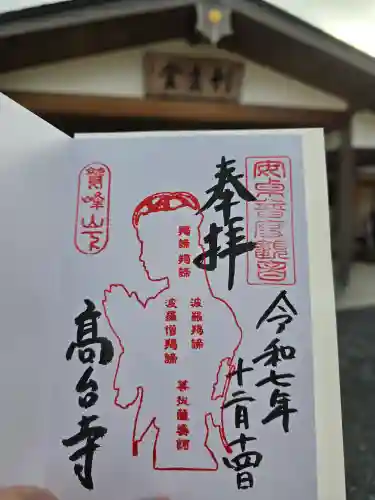 利生堂
奉拝
令和七年
十二月十四日
羯諦 羯諦
波羅羯諦
波羅僧羯諦
菩提薩婆訶
鷲峰山下
高台寺